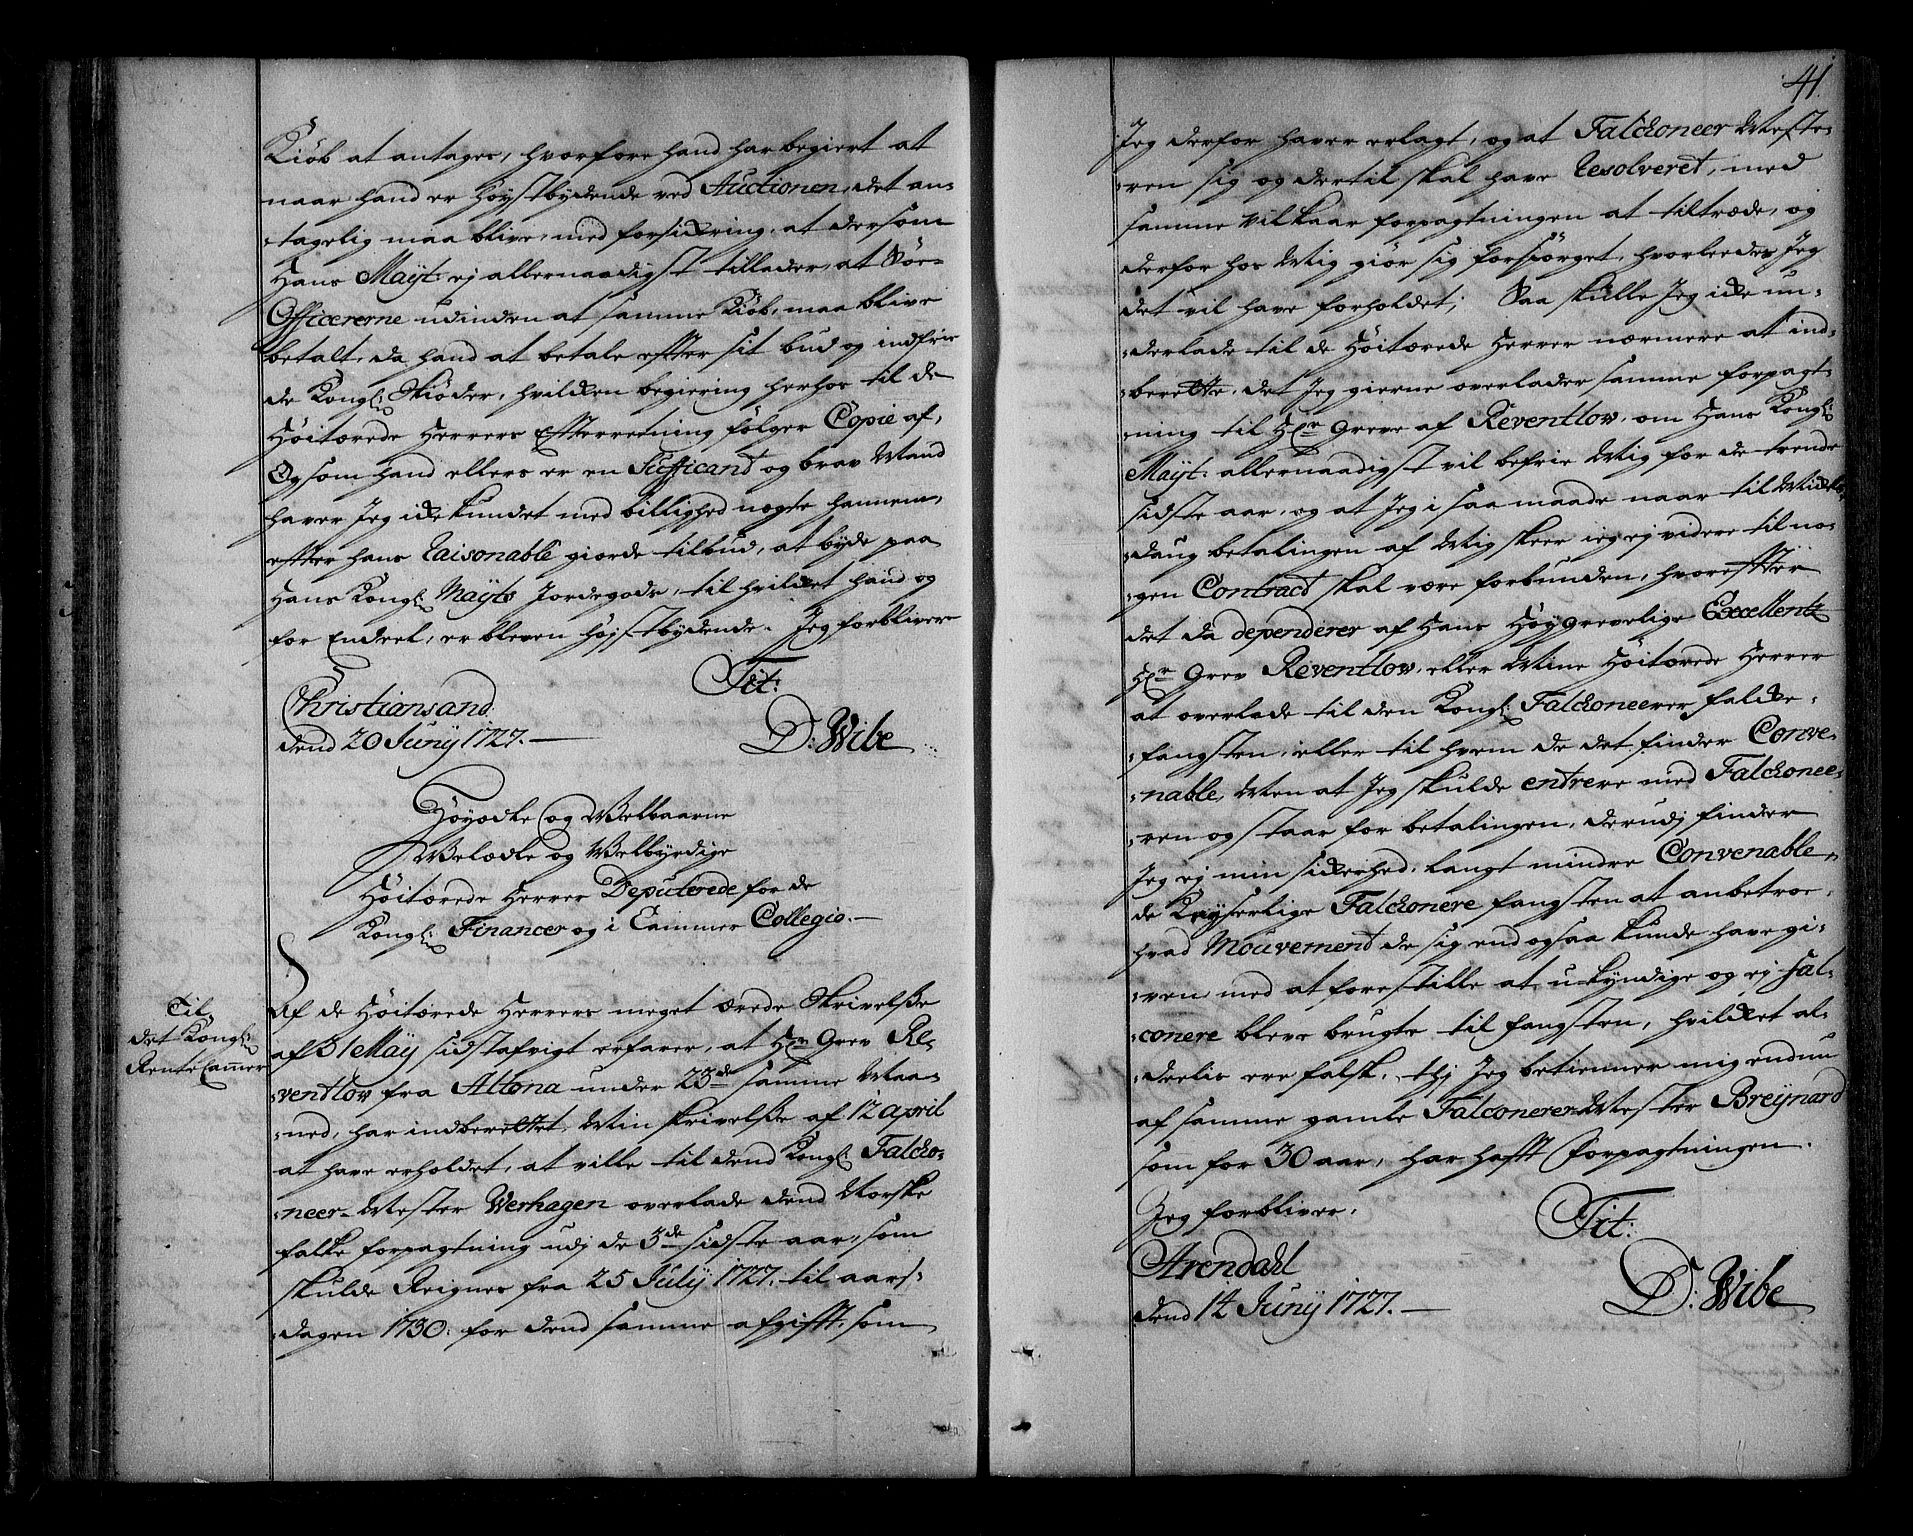 Kiøb at antages, hvorfore hand har begiert at
naar hand er Høystbydende ved Auctionen, det an-
-tagelig maa blive, med forsickring, at dersom
Hans Mayt: ej allernaadigst tillader, at Søe-
Officererne udinden at samme Kiøb, maa blive
betalt, da hand at betale effter sit bud og indfrie
de Kongl: Skiøder, hvilcken begiering herhos til de
Høitærede Herrers Effterretning følger Copie af,
Og som hand ellers er en Sufficand og brav Mand
haver Jeg icke kundet med billighed negte hannem,
effter hans Raisonable giorde tilbud, at byde paa
Hans Kongl: Mayts Jordegods, til hvilcket hand og
for Endeel, er bleven højstbydende. Jeg forbliver
Tit:
Christiansand
dend 20 Junij 1727.
D: Wibe
Høyædle og Welbaarne
Welædle og Welbyrdige
Høitærede Herrer Deputerede for de
Kongl: Financer og i Cammer Collegio.
Til
det Kongl:
Rente Cammer
Af de Høitærede Herrers meget ærede Skrivelße
af 31 Maÿ sidstafvigt erfarer, at Hr Grev Re-
-ventlow fra Altona under 23de samme Maa-
-ned, har indberettet, Min skrivelße af 12 april
at have erholdet, at ville til dend Kongl: Falcko-
-neer-Mester Verhagen overlade dend Norske
falke forpagtning udj de 3de sidste aar, som
skulde Reignes fra 25 Julij 1727. til aars-
-dagen 1730: for dend samme afgifft, som
41.
Jeg derfor haver erlagt, og at Falckoneer Meste-
-ren sig og dertil skal have Resolveret, med
samme Vilkaar forpagtningen at tiltræde, og
derfor hos Mig giør sig forspørget, hvorleedes Jeg
det vil have forholdet; Saa skulle Jeg icke un-
-derlade til de Høitærede Herrer nærmere at ind-
-berette, det Jeg gierne overlader samme forpagt-
-ning til Hr Greve af Reventlow, om Hans Kongl:
Mayt: allernaadigst vil befrie Mig for de trende
sidste aar, og at Jeg i saa maade naar til Mickels
-daug betalingen af Mig skeer ieg ej videre til no-
-gen Contract skal være forbunden, hvoreffter
det da dependerer af Hans Høygrevelige Excellentz
Hr Grev Reventlow, eller Mine Høitærede Herrer
at overlade til den Kongl: Falckoneerer falcke-
-fangsten, eller til hvem de det finder Conve-
-nable, Men at Jeg skulde entrere med Falckonee-
-ren og staar for betalingen, derudj finder
Jeg ej min sickerhed, langt mindre Convenable,
de Kayserlige Falckonere fangsten at anbetroe
hvad Mouvement de sig end ogsaa kunde have gi-
-ven med at forestille at u-kyndige og ej Fal-
conere bleve brugte til fangsten, hvilcket al-
-deelis ere falsk, thj Jeg betienner mig endnu
af samme gamle Falconerer Mester Breijnard
som for 30 aar, har hafft forpagtningen.
Jeg forbliver.
Tit:
Arendahl
dend 14 Junij 1727.
D: Wibe